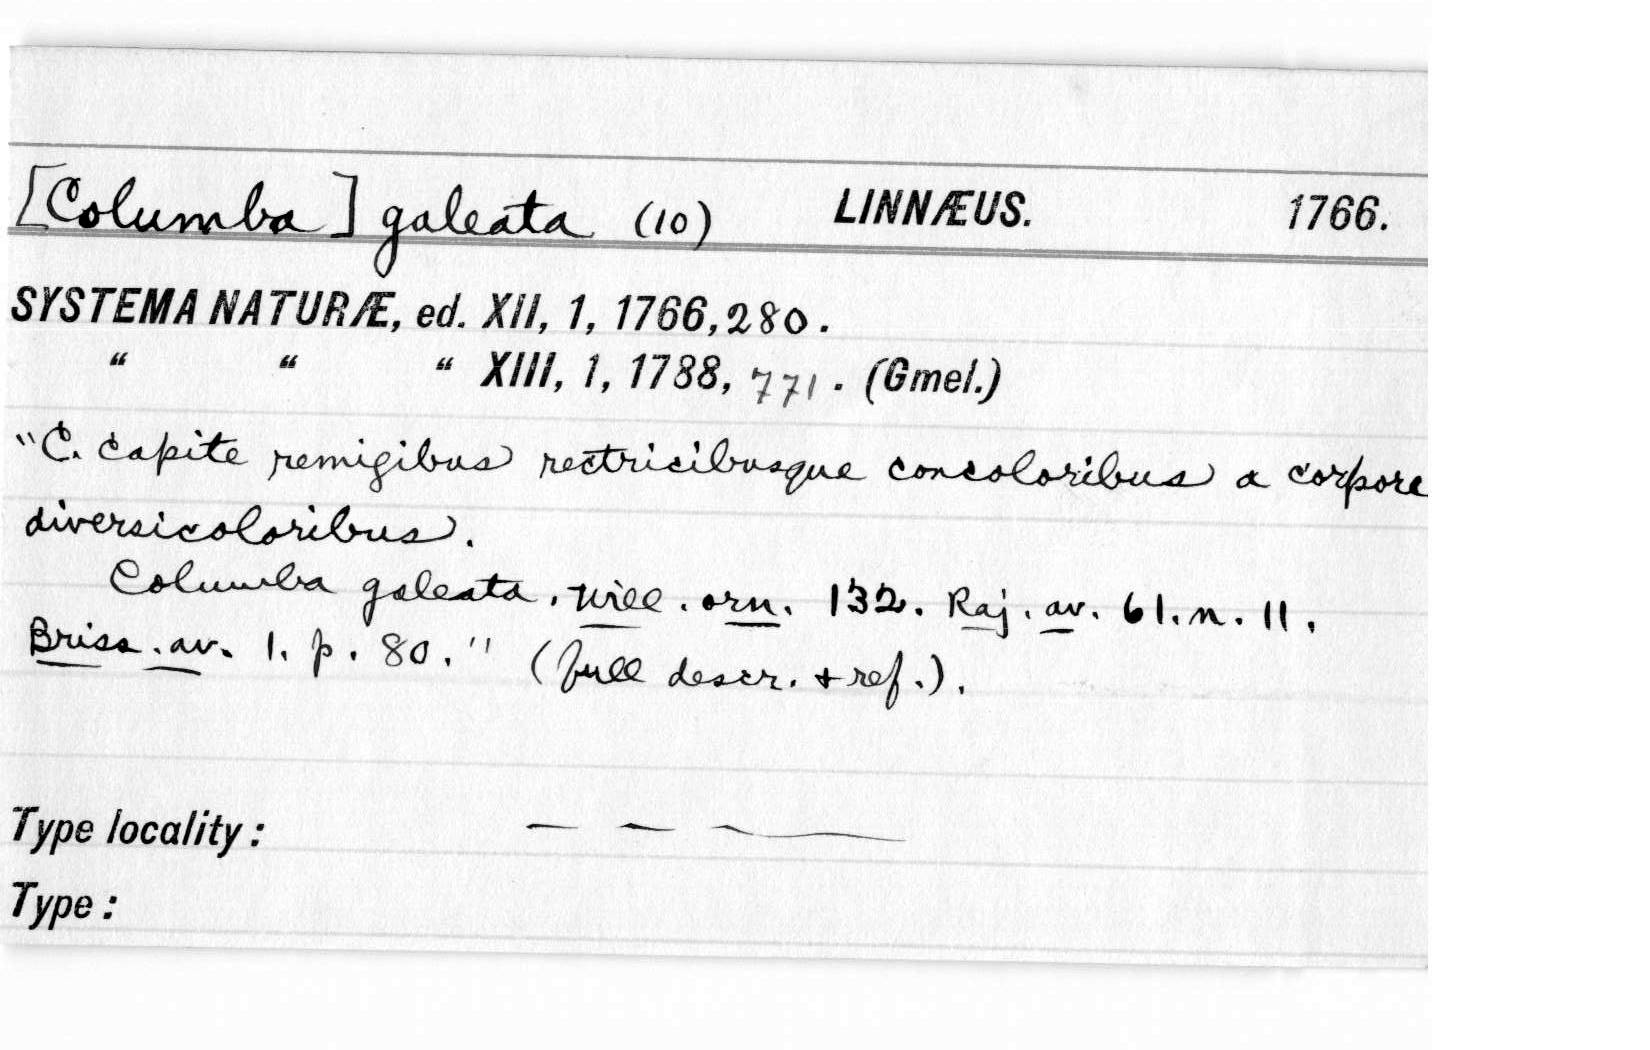 [Columba] galeata (10) LINNÆUS. 1766.
SYSTEMA NATURÆ, ed. XII, 1, 1766, 280.
“ “ “ XIII, 1, 1788, 771. (Gmel.)
"C. capite remigibus rectricibusque concoloribus a corpore
diversicoloribus.
Columba galeata. Will. orn. 132. Raj. av. 61. n. 11.
Briss. av. 1. p. 80." (full descr. + ref.).
Type locality: — — —
Type: